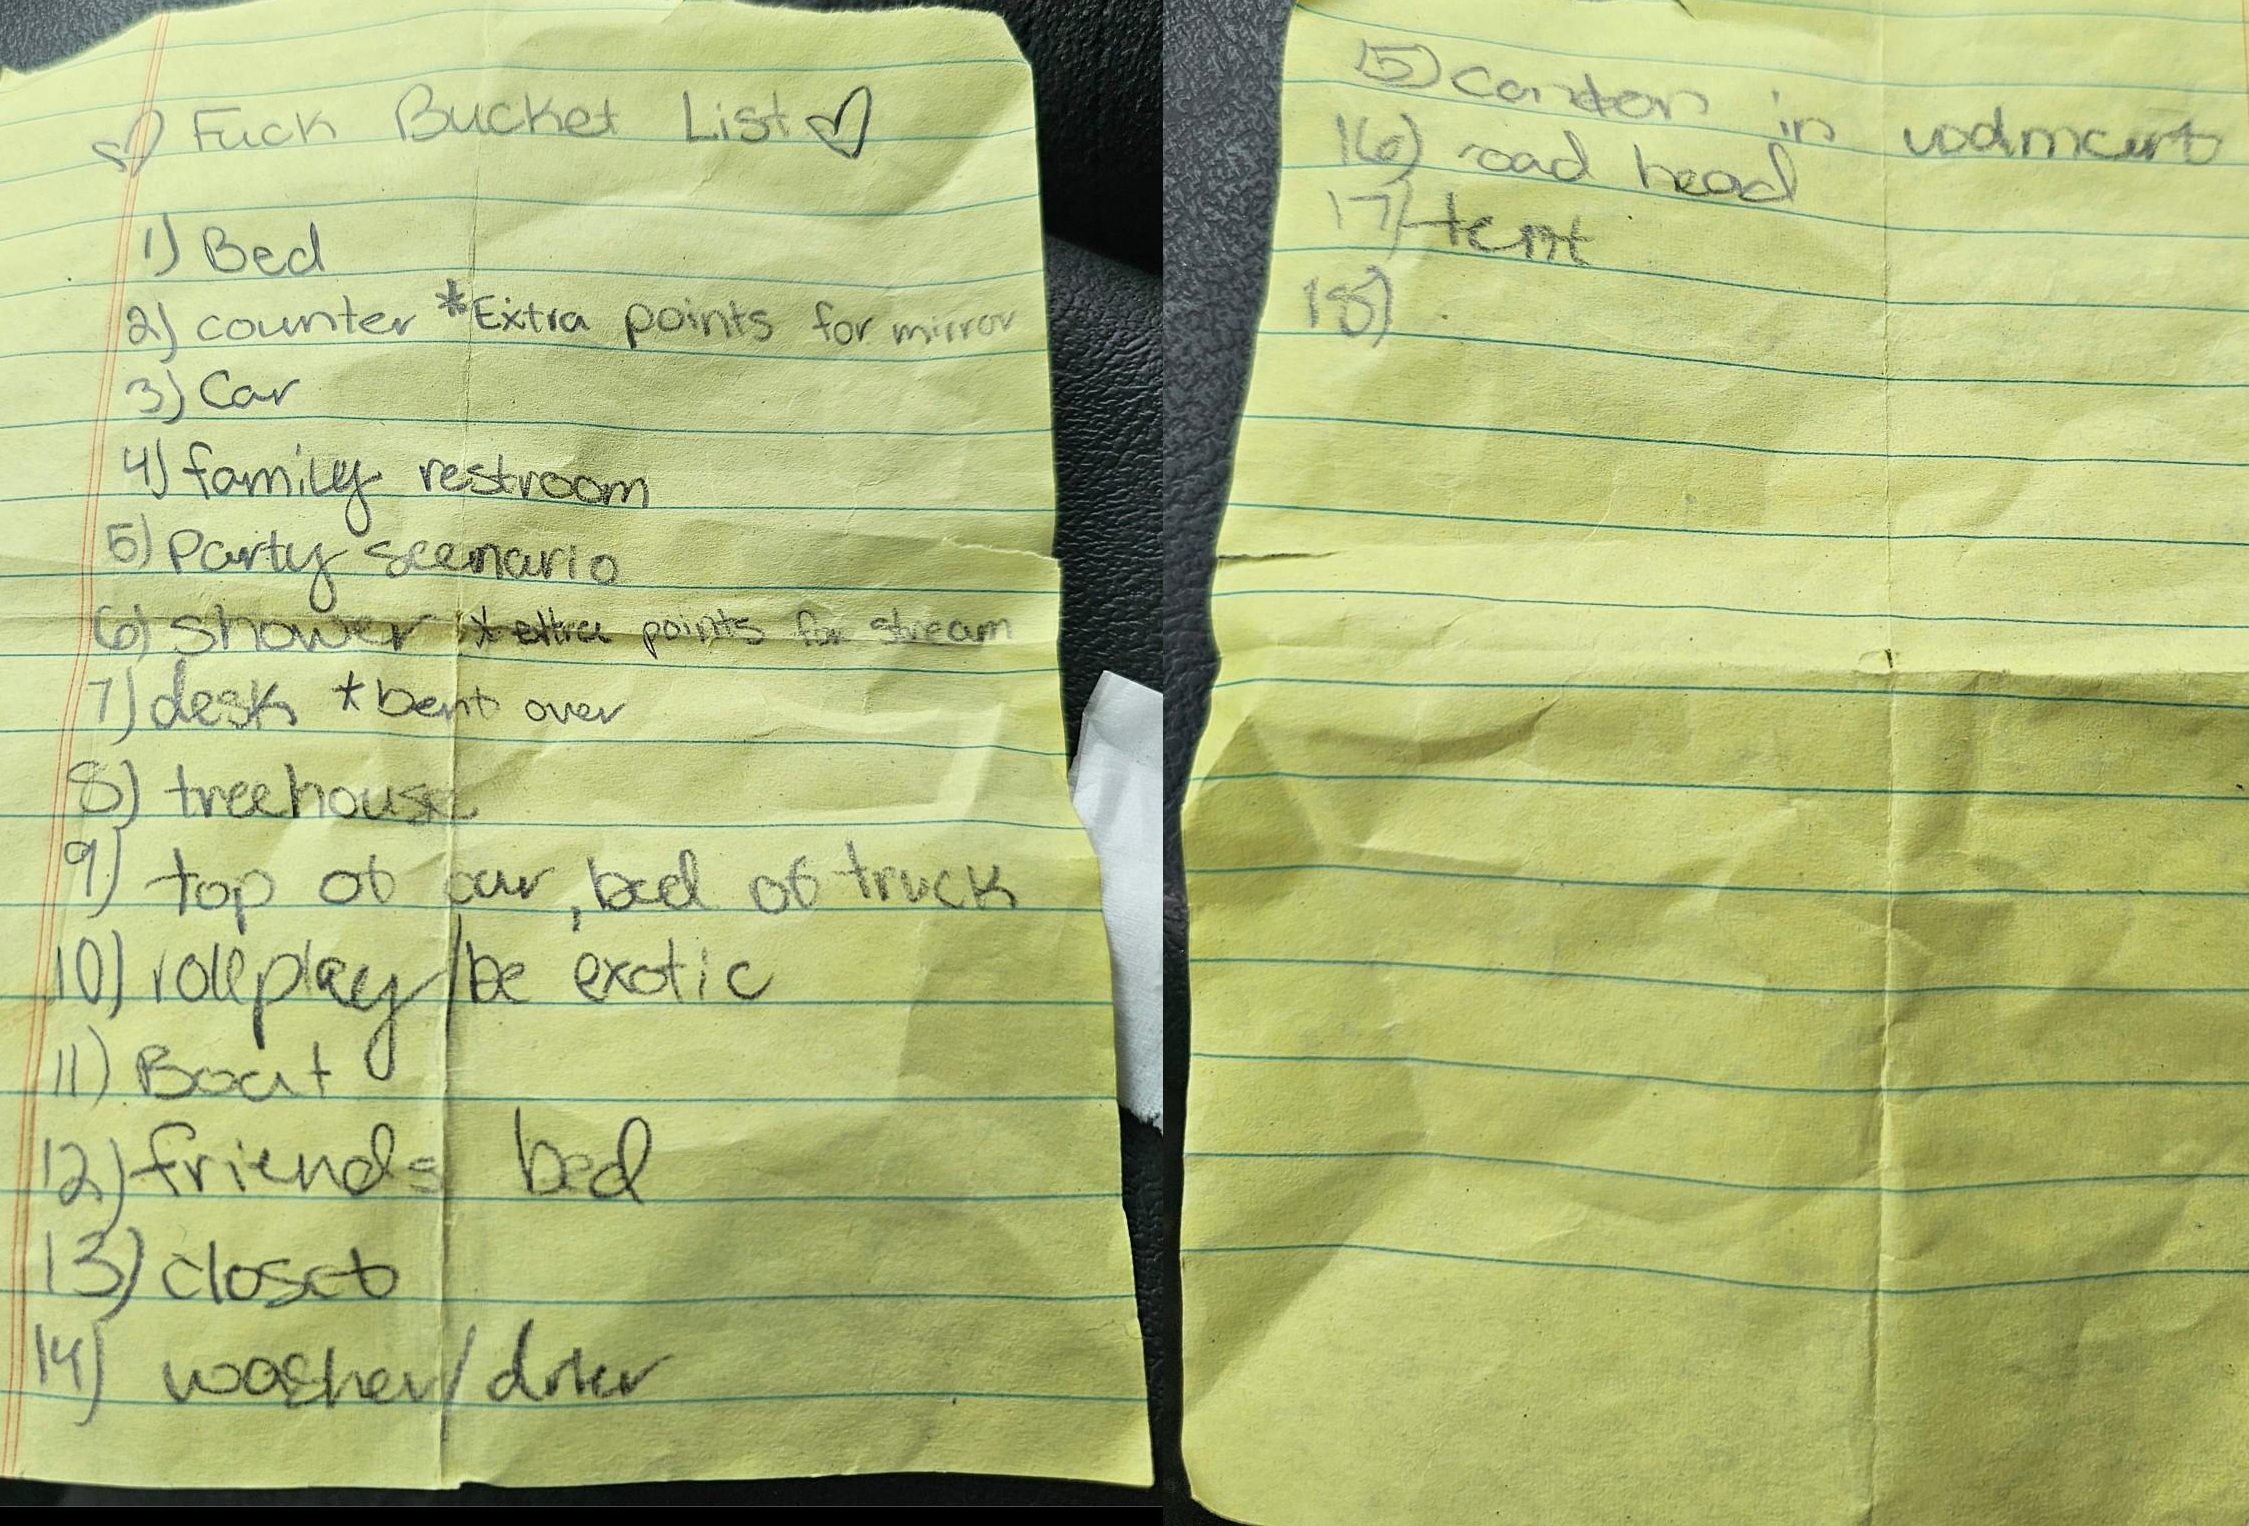 ♡ Fuck Bucket List ♡
1) Bed
2) counter *Extra points for mirror
3) Car
4) family restroom
5) Party scenario
6) shower *extra points for stream
7) desk *bent over
8) treehouse
9) top of car, bed of truck
10) roleplay/be exotic
11) Boat
12) friends bed
13) closet
14) washer/drier
15) in walmart
16) road head
17) tent
18)